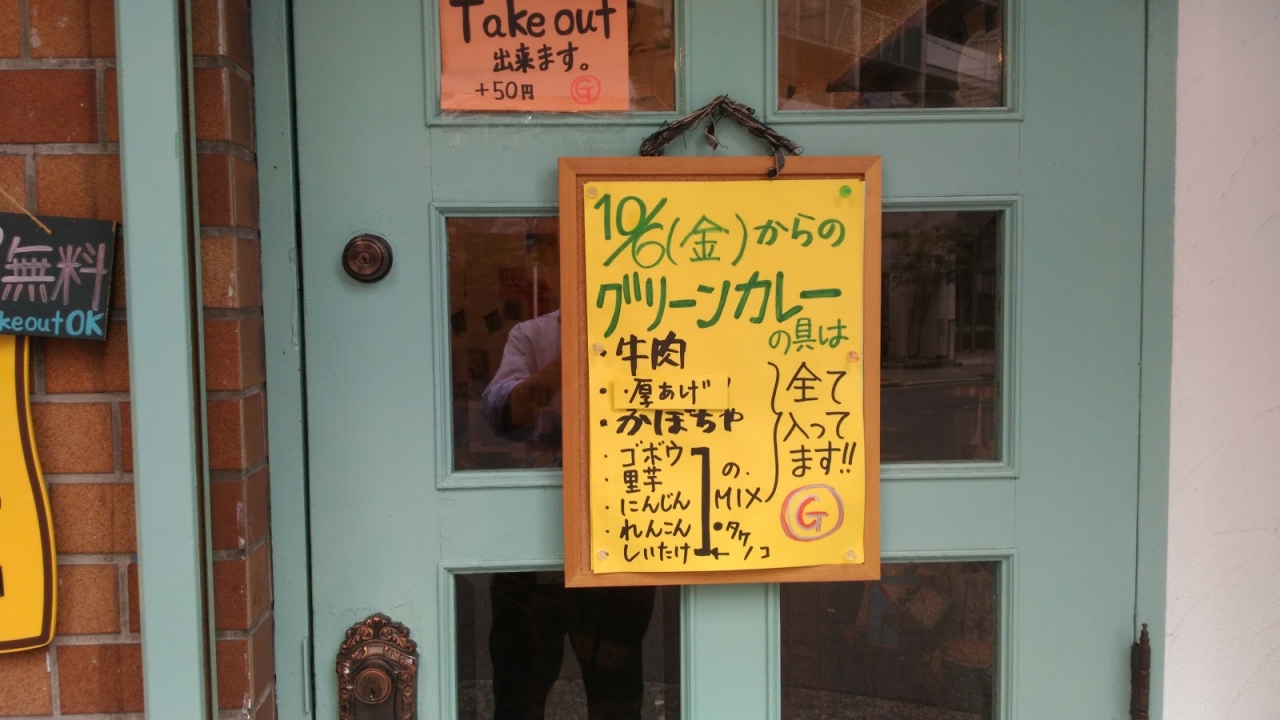 Take out
出来ます。
+50円 G
無料
keout OK
10/6(金)からの
グリーンカレー
の具は
・牛肉
・・厚あげ
・かぼちゃ
・ゴボウ
・里芋
・にんじん
・れんこん
・しいたけ
の
MIX
・タケノコ
全て
入って
ます!!
G